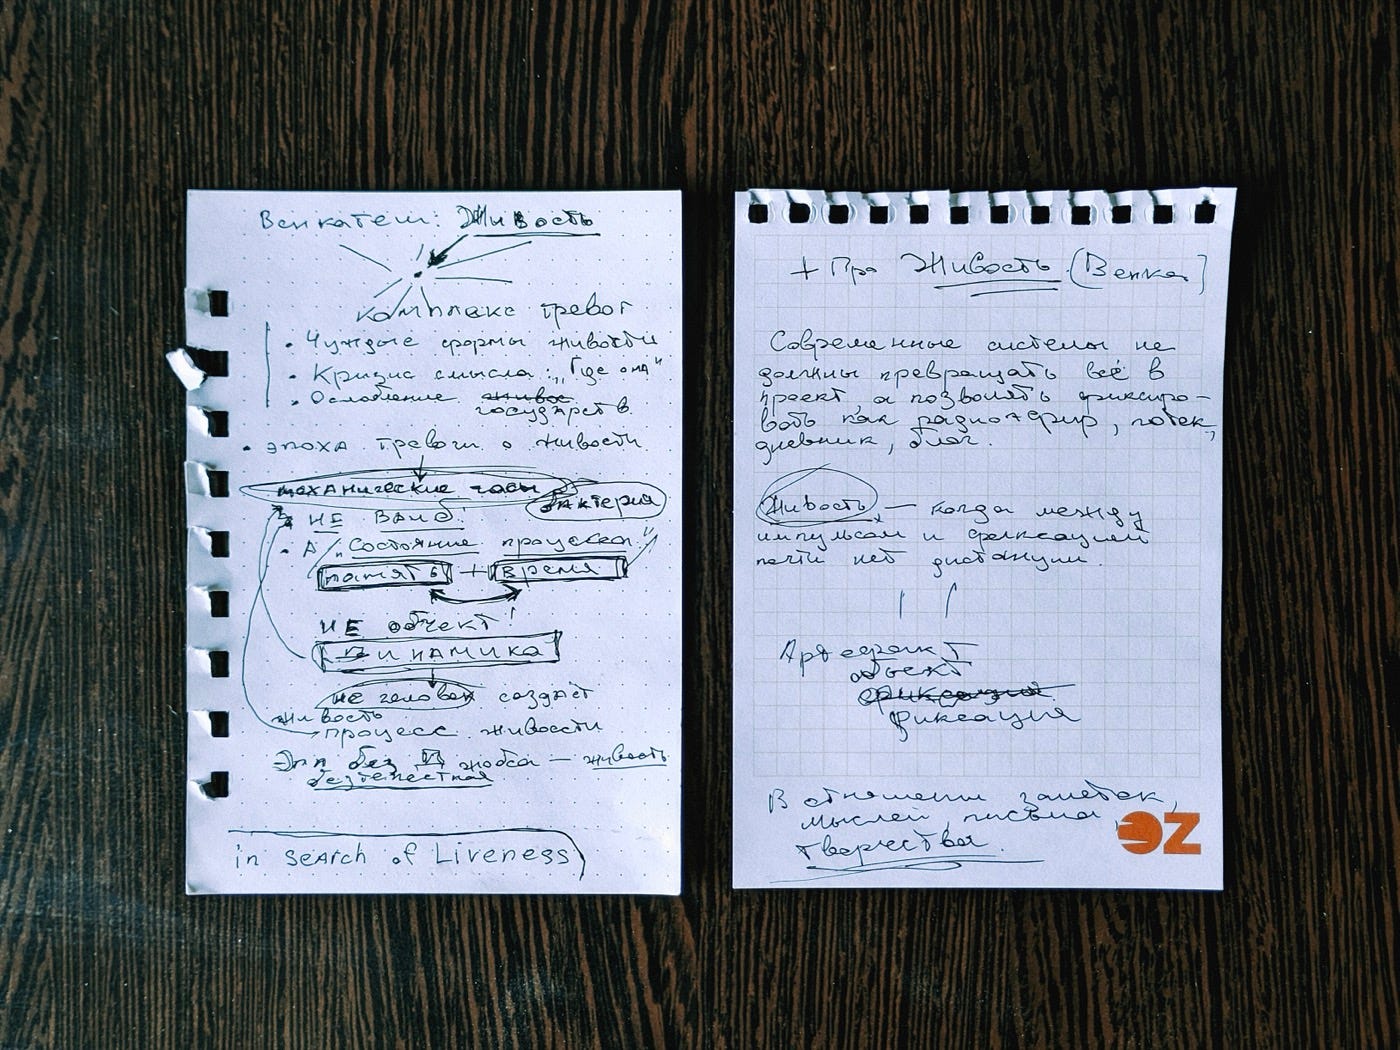 Венкатеш: Живость
комплекс тревог
• Чуждые формы живости
• Кризис смысла: „Где она"
• Ослабление живое
государств
• эпоха тревоги о живости
механические часы
бактерия
НЕ ВАЙБ!
• А „Состояние процесса"
память + время
НЕ объект!
Динамика
не человек создаёт
живость
процесс живости
без жобса — живость
безтелестная
in search of Liveness
+ Про Живость (Венка)
Современные системы не
должны превращать всё в
проект, а позволять фиксиро-
вать как радиоэфир, поток,
дневник, блог.
Живость — когда между
импульсом и фиксацией
почти нет дистанции.
Артефакт
объект
фиксация
фиксация
В отношении заметок,
мыслей, письма,
творчества.